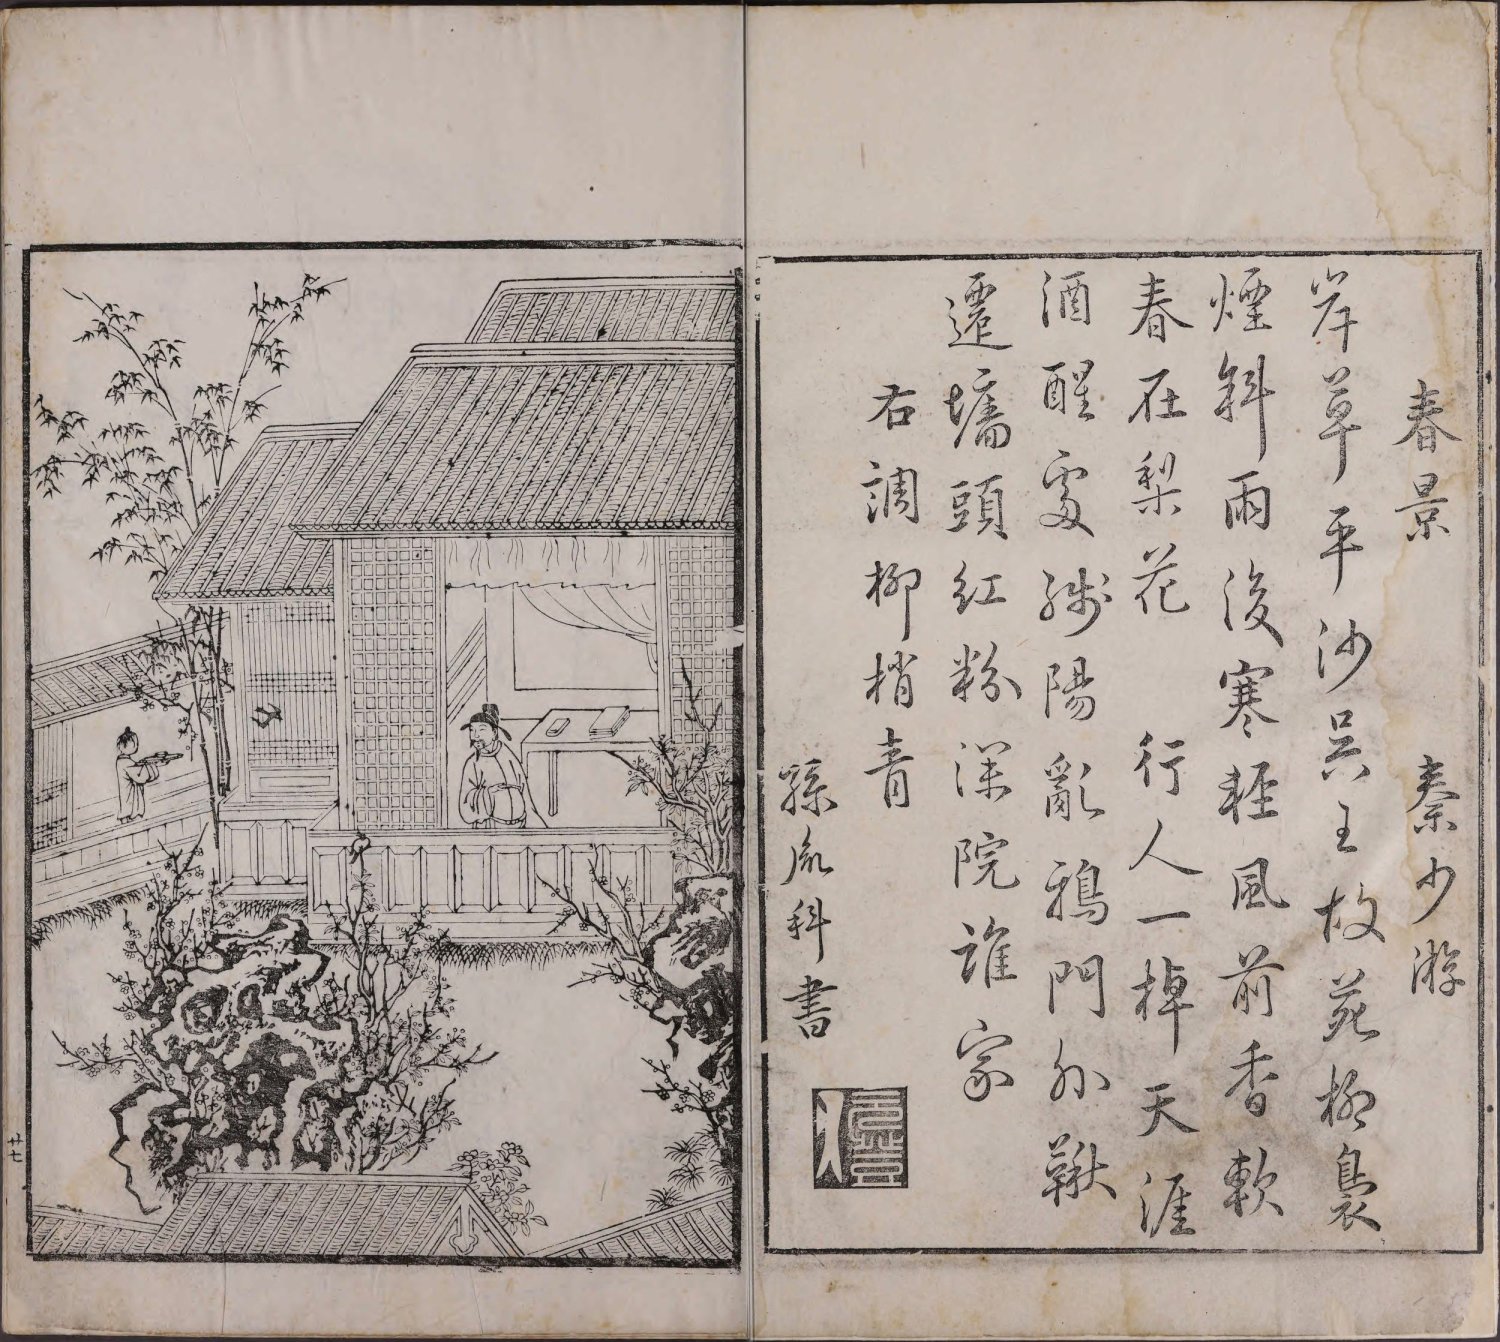 春景 秦少游
岸草平沙吳王故苑柳裊
煙斜雨後寒輕風前香軟
春在梨花 行人一棹天涯
酒醒處殘陽亂鴉門外鞦
遷墻頭紅粉深院誰家
右調柳梢青
孫胤科書
廿七